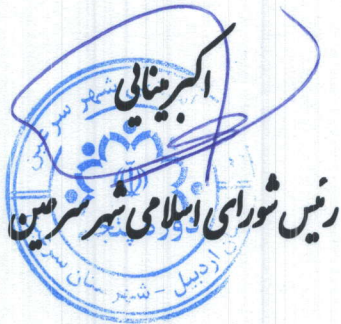 اکبر مینایی
رئیس شورای اسلامی شهر سرعین
شهر سرعین
اردبیل - شهرستان سر